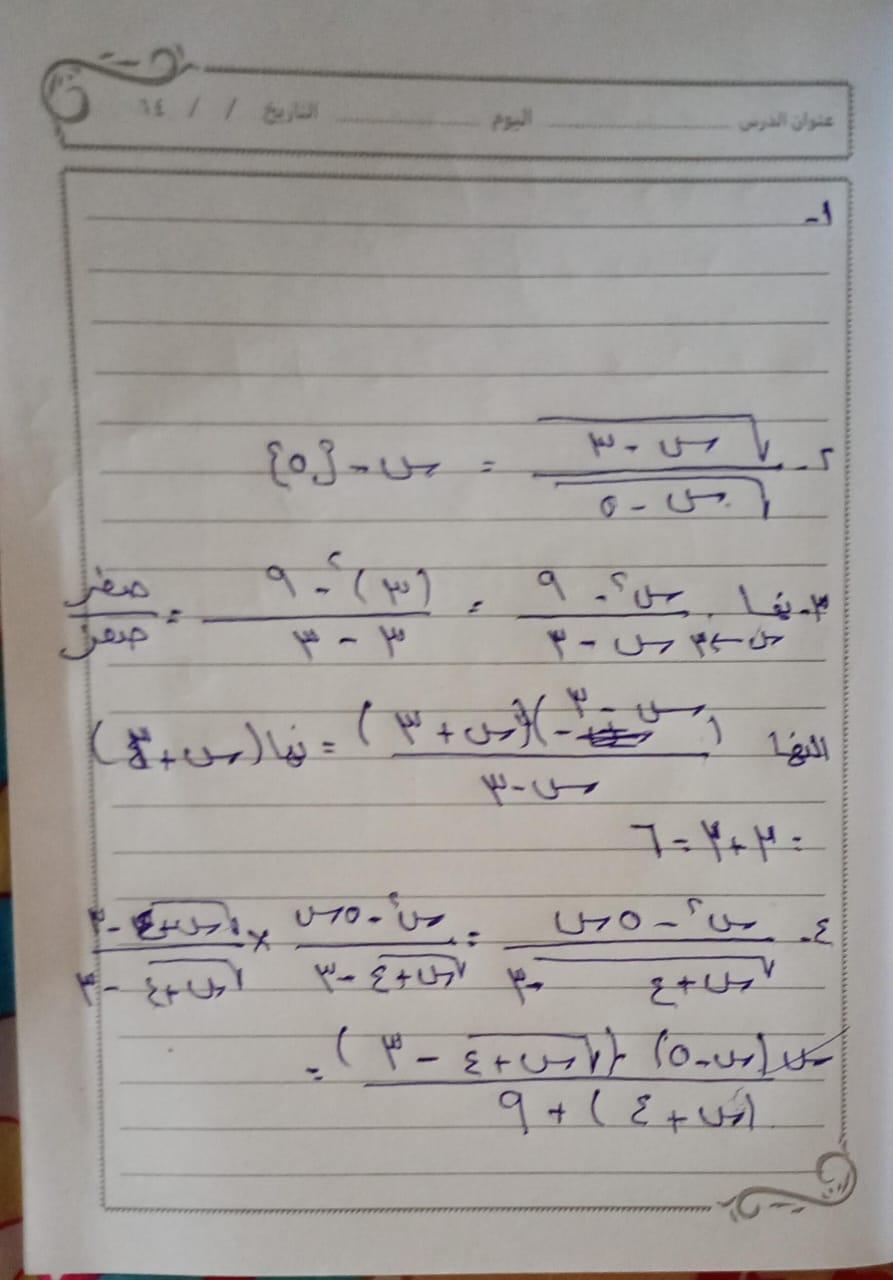 عنوان الدرس ........ اليوم ........ التاريخ / / ١٤
١-
٢- √(س - ٣) / √(س - ٥) = س - {٥}
٣- نهـا س←٣ (س٢ - ٩) / (س - ٣) = ((٣)٢ - ٩) / (٣ - ٣) = صفر / صفر
(س - ٣)(س + ٣) / (س - ٣) = نهـا (س + ٣)
= ٣ + ٣ = ٦
٤- (س٢ - ٥س) / (√(س + ٤) - ٣) = (س٢ - ٥س) / (√(س + ٤) - ٣) × (√(س + ٤) - ٣) / (√(س + ٤) - ٣)
س(س - ٥)(√(س + ٤) - ٣) / ((س + ٤) + ٩) =